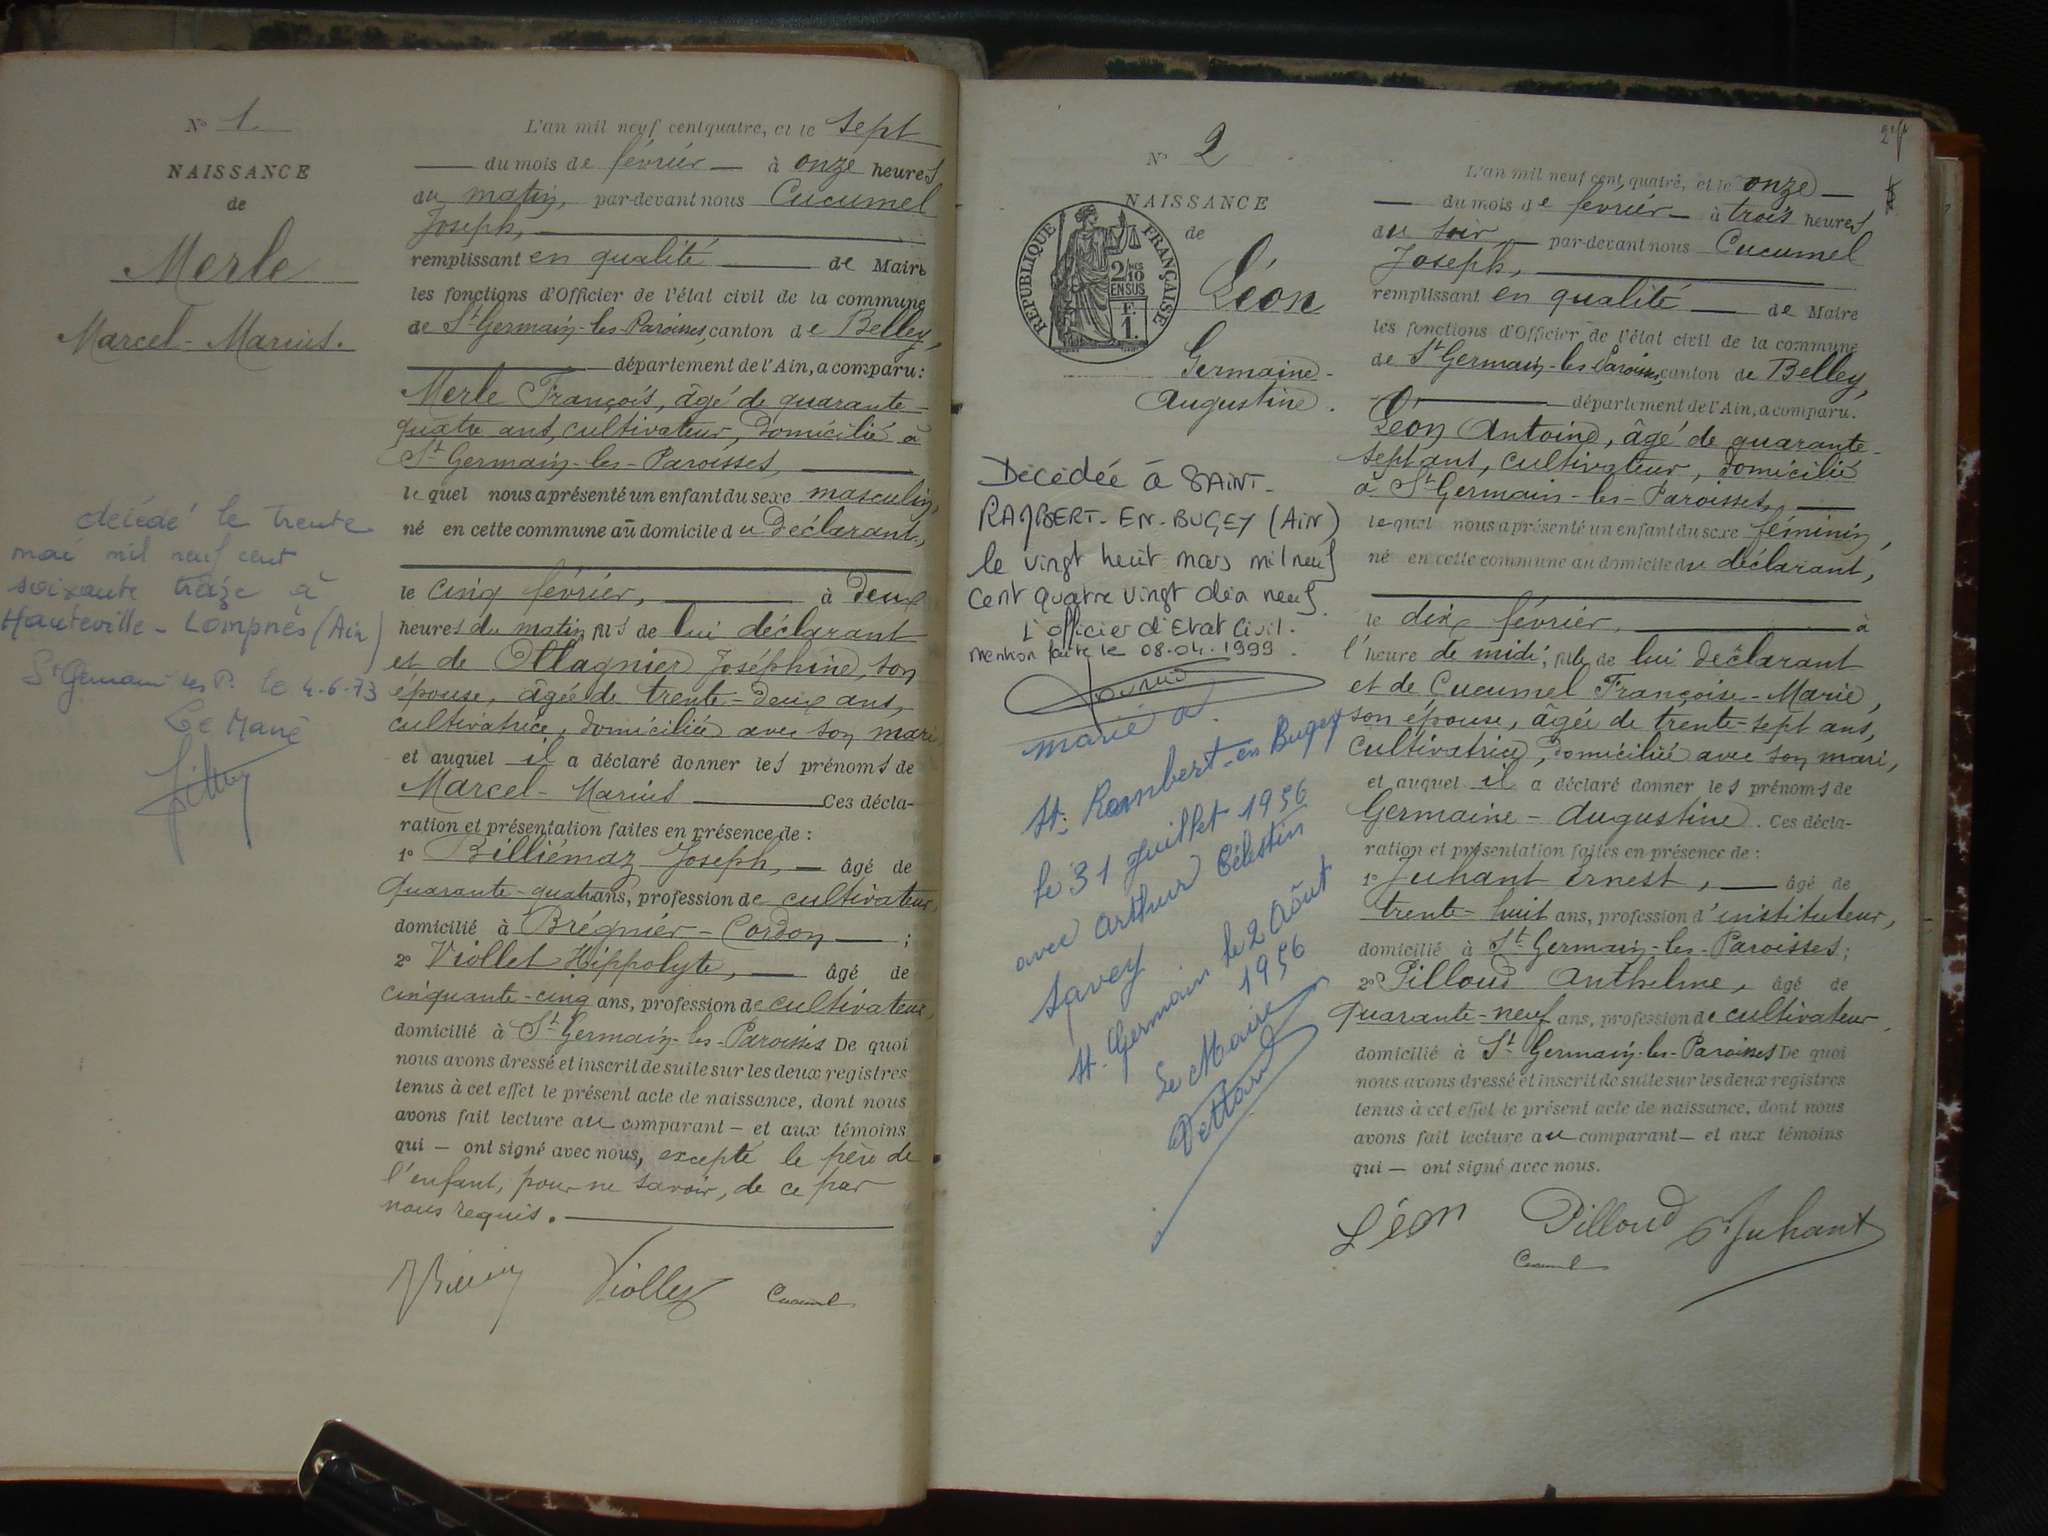 N° 1
NAISSANCE
de
Merle
Marcel-Marius.
décédé le trente
mai mil neuf cent
soixante treize à
Hauteville-Lompnès (Ain)
St Germain les P. le 4-6-73
Le Maire
L'an mil neuf cent quatre, et le sept
du mois de février à onze heures
du matin, par-devant nous Cucumel
Joseph,
remplissant en qualité de Maire
les fonctions d'Officier de l'état civil de la commune
de St Germain-les-Paroisses, canton de Belley,
département de l'Ain, a comparu:
Merle François, âgé de quarante-
quatre ans, cultivateur, domicilié à
St Germain-les-Paroisses,
lequel nous a présenté un enfant du sexe masculin,
né en cette commune au domicile du déclarant,
le cinq février, à deux
heures du matin, fils de lui déclarant
et de Ollagnier Joséphine, son
épouse, âgée de trente-deux ans,
cultivatrice, domiciliée avec son mari,
et auquel il a déclaré donner les prénoms de
Marcel-Marius Ces décla-
ration et présentation faites en présence de:
1° Billiémaz Joseph, âgé de
quarante-quatre ans, profession de cultivateur,
domicilié à Brégnier-Cordon ;
2° Viollet Hippolyte, âgé de
cinquante-cinq ans, profession de cultivateur,
domicilié à St Germain-les-Paroisses De quoi
nous avons dressé et inscrit de suite sur les deux registres
tenus à cet effet le présent acte de naissance, dont nous
avons fait lecture au comparant – et aux témoins
qui – ont signé avec nous, excepté le père de
l'enfant, pour ne savoir, de ce par
nous requis.
Viollet Cucumel
2
N° 2
NAISSANCE
de
RÉPUBLIQUE FRANÇAISE
2/10
EN SUS
1 F.
Léon
Germaine-
Augustine.
Décédée à SAINT-
RAMBERT-EN-BUGEY (Ain)
le vingt huit mars mil neuf
cent quatre vingt dix neuf.
L'officier d'Etat Civil.
mention faite le 08.04.1999.
marié à
St. Rambert-en Bugey
le 31 Juillet 1956
avec Arthur Célestin
Savey
St. Germain le 2 Août
1956
Le Maire
L'an mil neuf cent quatre, et le onze
du mois de février à trois heures
du soir par-devant nous Cucumel
Joseph,
remplissant en qualité de Maire
les fonctions d'Officier de l'état civil de la commune
de St Germain-les-Paroisses, canton de Belley,
département de l'Ain, a comparu.
Léon Antoine, âgé de quarante-
sept ans, cultivateur, domicilié
à St Germain-les-Paroisses,
lequel nous a présenté un enfant du sexe féminin,
né en cette commune au domicile du déclarant,
le dix février, à
l'heure de midi, fille de lui déclarant
et de Cucumel Françoise-Marie,
son épouse, âgée de trente-sept ans,
cultivatrice, domiciliée avec son mari,
et auquel il a déclaré donner les prénoms de
Germaine-Augustine. Ces décla-
ration et présentation faites en présence de:
1° Juhant Ernest, âgé de
trente-huit ans, profession d'instituteur,
domicilié à St Germain-les-Paroisses;
2° Pilloud Anthelme, âgé de
quarante-neuf ans, profession de cultivateur,
domicilié à St Germain-les-Paroisses De quoi
nous avons dressé et inscrit de suite sur les deux registres
tenus à cet effet le présent acte de naissance, dont nous
avons fait lecture au comparant – et aux témoins
qui – ont signé avec nous.
Léon Pilloud Juhant
Cucumel